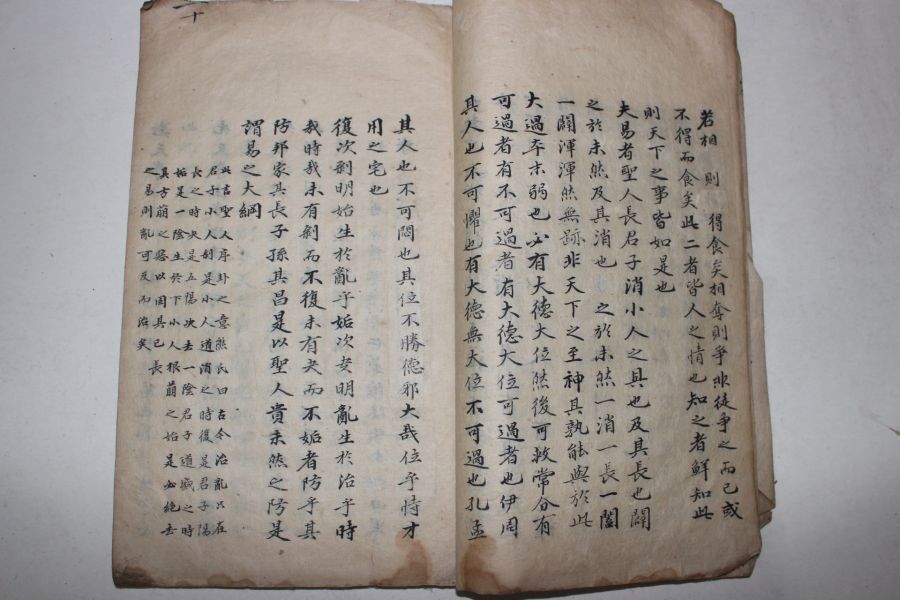 若相 則 得食矣相奪則爭非徒爭之而已或
不得而食矣此二者皆人之情也知之者鮮知此
則天下之事皆如是也
夫易者聖人長君子消小人之具也及其長也闢
之於未然及其消也 之於未然一消一長一闔
一闢渾渾然無跡非天下之至神其孰能與於此
大過卒末弱也必有大德大位然後可救常分有
可過者有不可過者有大德大位可過者也伊周
其人也不可懼也有大德無大位不可過也孔孟
其人也不可悶也其位不勝德邪大哉位乎恃才
用之宅也
復次剝明始生於亂乎姤次夬明亂生於治乎時
哉時哉未有剝而不復未有夬而不姤者防乎其
防邦家其長子孫其昌是以聖人貴未然之防是
謂易之大綱
此古聖人序卦之意熊氏曰古今治亂只在
君子小人剝是小人道消之時復是君子陽
長之時夬是五陽決去一陰君子道盛之時
姤是一陰生於下小人根萌之始是必絕去
其方萌之 以固其已長
之易則亂可反而治矣
二十